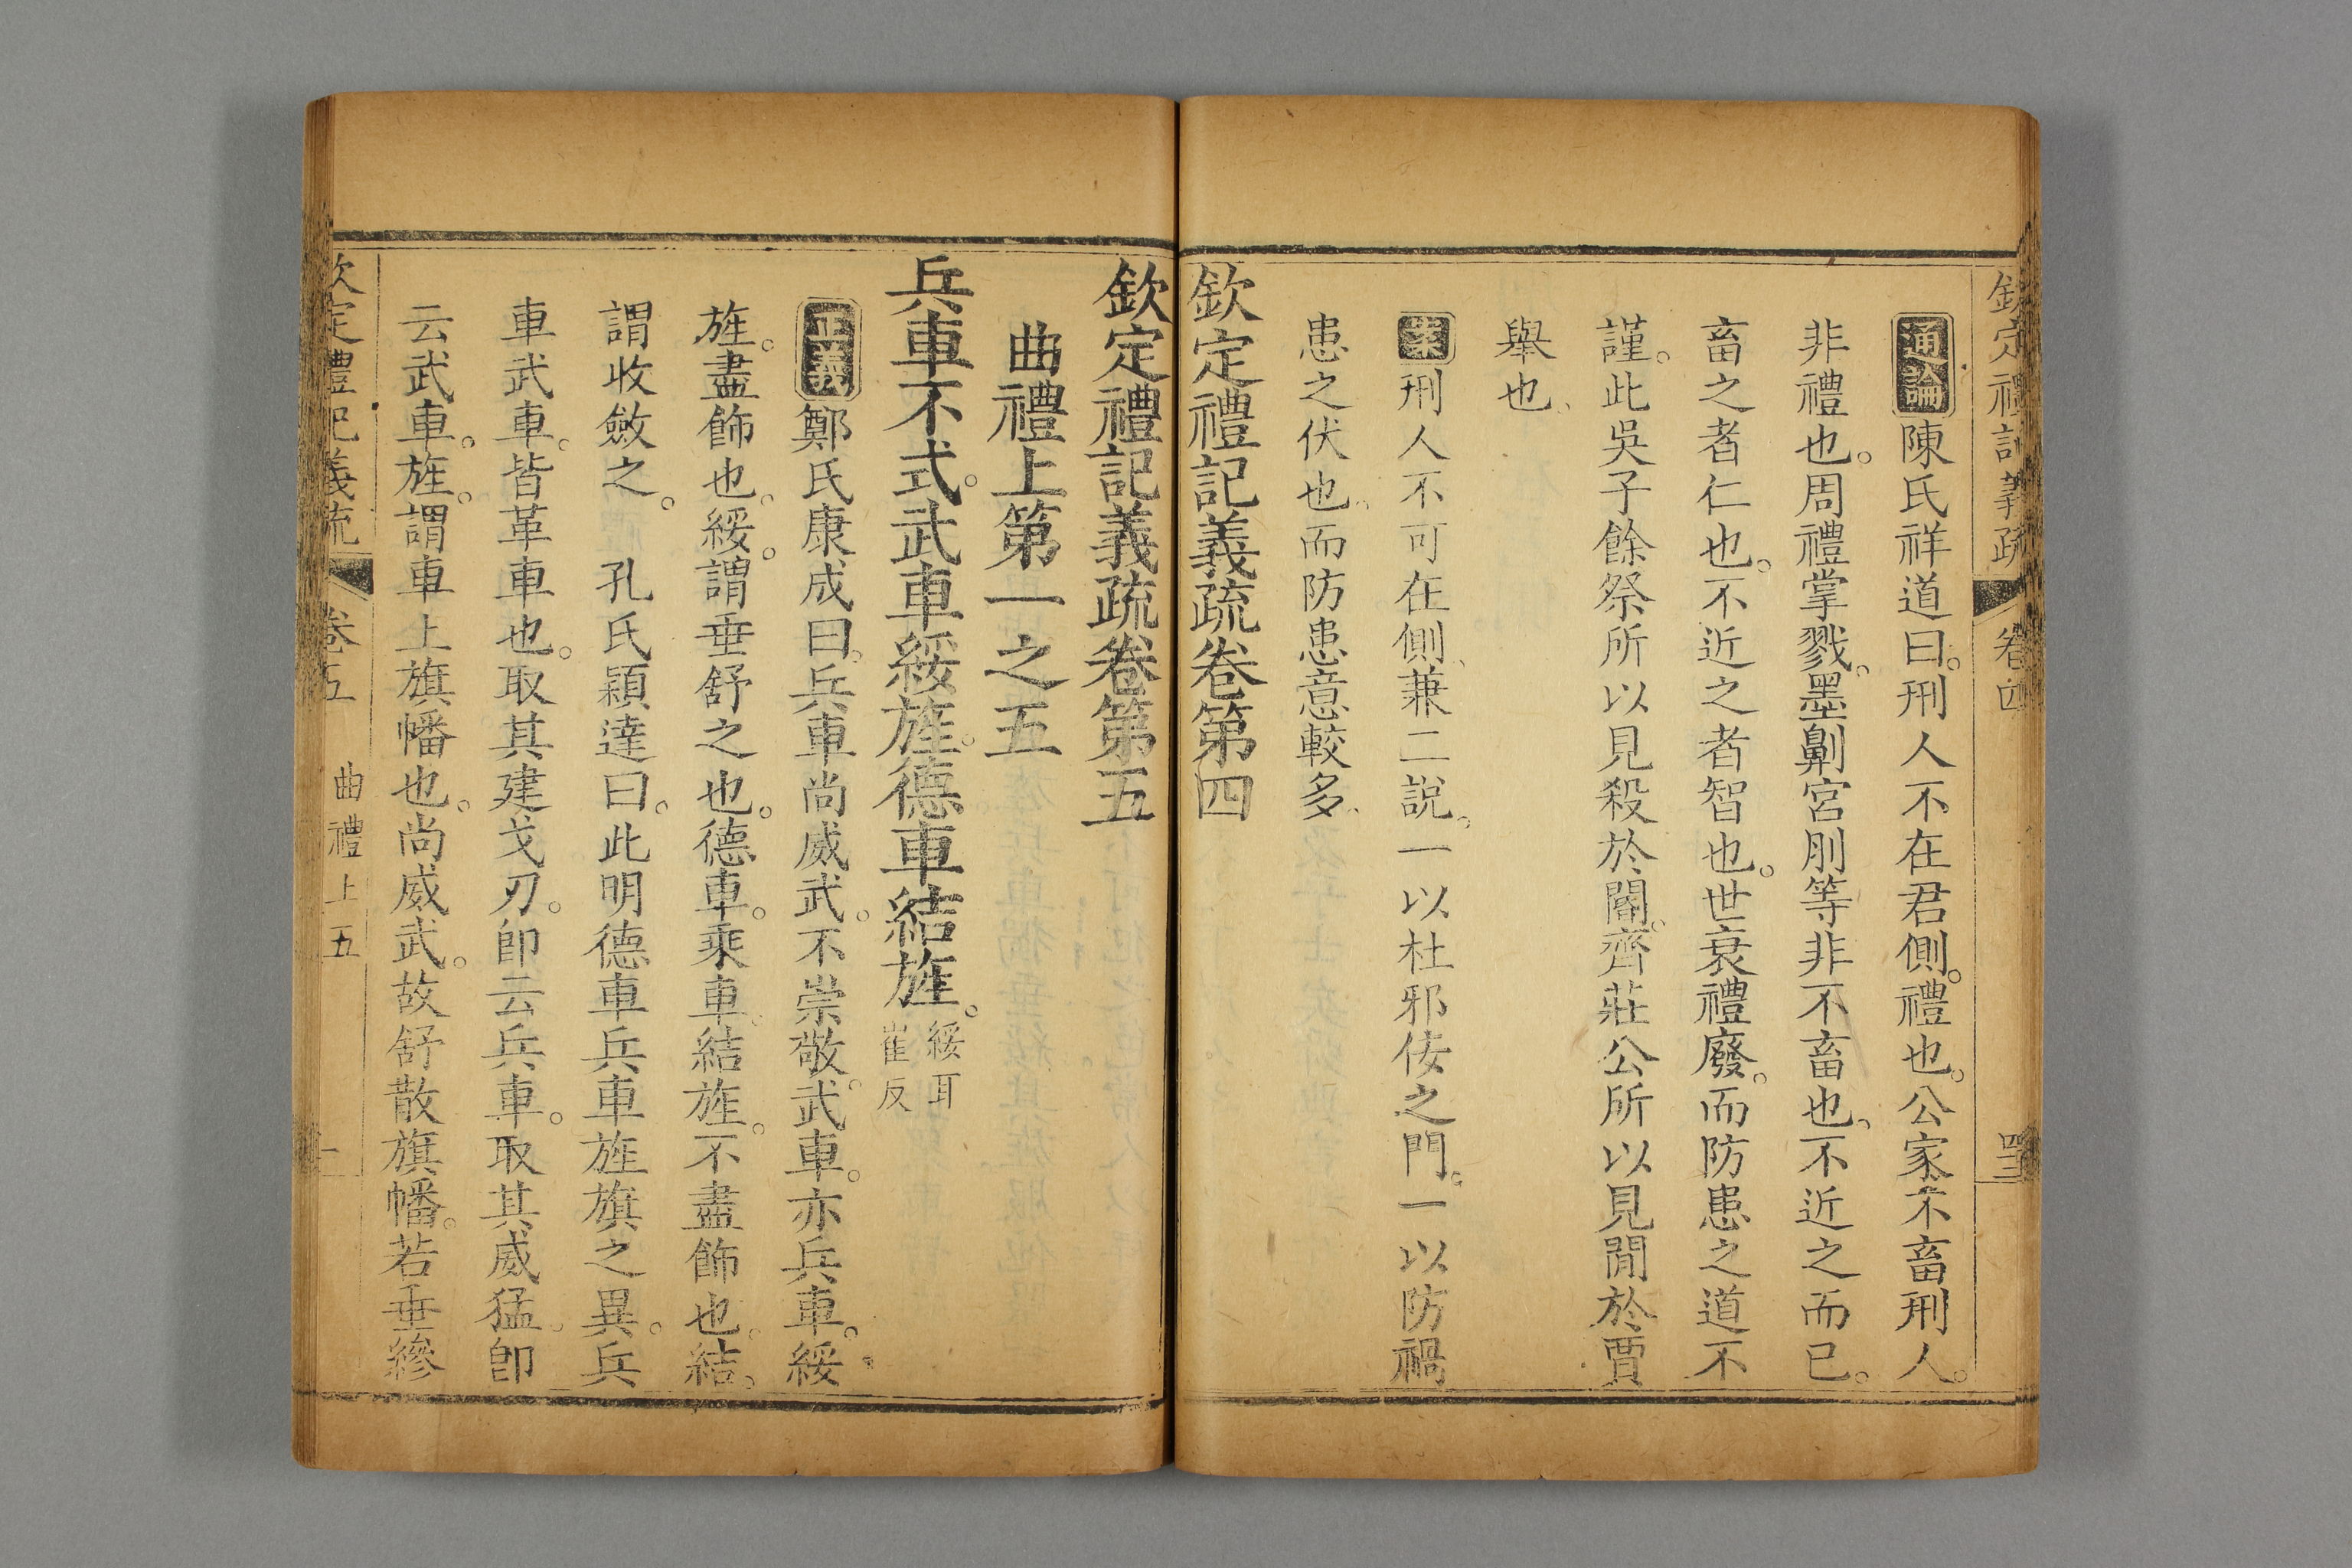 欽定禮記義疏 卷四
通論陳氏祥道曰。刑人不在君側。禮也。公家不畜刑人。
非禮也。周禮掌戮。墨劓宮刖等非不畜也。不近之而已。
畜之者仁也。不近之者智也。世衰禮廢。而防患之道不
謹。此吳子餘祭所以見殺於閽。齊莊公所以見閒於賈
舉也。
案刑人不可在側、兼二說。一以杜邪佞之門。一以防禍
患之伏也。而防患意較多。
欽定禮記義疏卷第四
欽定禮記義疏卷第五
曲禮上第一之五
兵車不式。武車綏旌。德車結旌。綏耳
崔反
正義鄭氏康成曰。兵車尚威武。不崇敬。武車。亦兵車。綏
旌。盡飾也。綏。謂垂舒之也。德車。乘車。結旌。不盡飾也。結。
謂收斂之。 孔氏穎達曰。此明德車兵車旌旗之異。兵
車武車。皆革車也。取其建戈刃。卽云兵車。取其威猛。卽
云武車。旌。謂車上旗幡也。尚威武。故舒散旗幡。若垂縿
欽定禮記義疏 卷五 曲禮上五